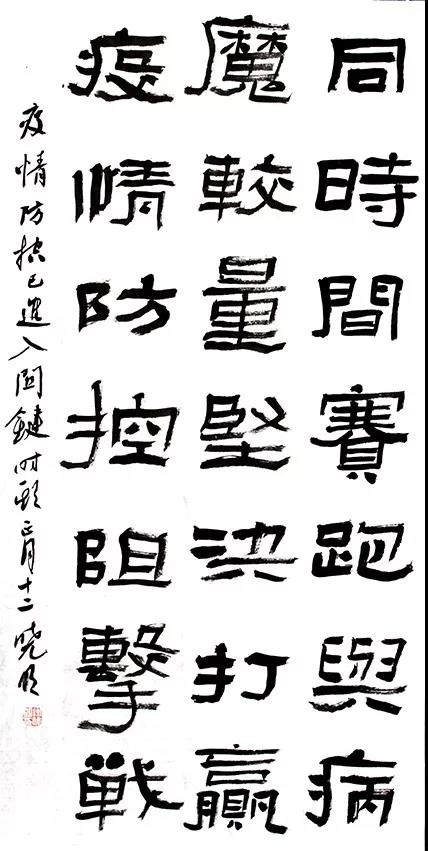 同時間賽跑與病
魔較量堅決打贏
疫情防控阻擊戰
疫情防控已進入関鍵时正月十二晓明